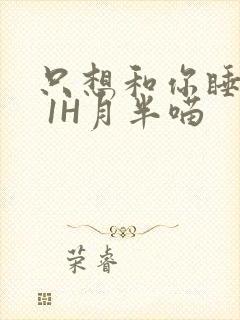 只想和你睡
1H月半喵
荣睿